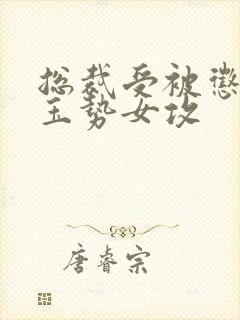 总裁受被惩
玉势女攻
唐睿宗